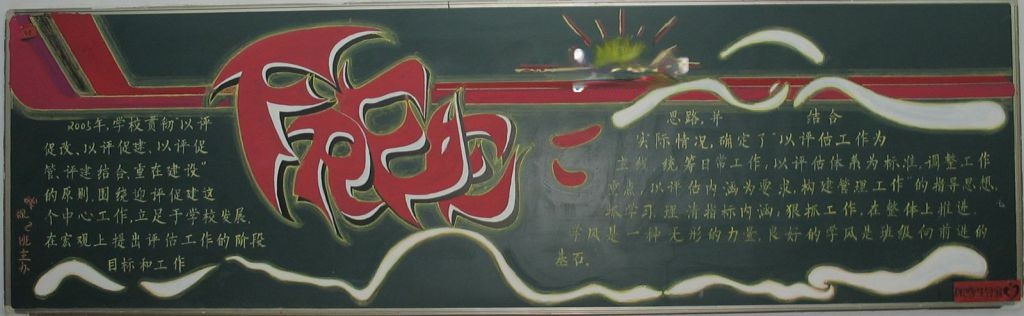 2005年,学校贯彻"以评
促改、以评促建、以评促
管、评建结合,重在建设"
的原则,围绕迎评促建这
个中心工作,立足于学校发展,
在宏观上提出评估工作的阶段
目标和工作
思路,并 结合
实际情况,确定了"以评估工作为
主线,统筹日常工作,以评估体系为标准,调整工作
重点,以评估内涵为要求,构建管理工作"的指导思想,
抓学习,理清指标内涵,狠抓工作,在整体上推进。
学风是一种无形的力量,良好的学风是班级向前进的
基石。